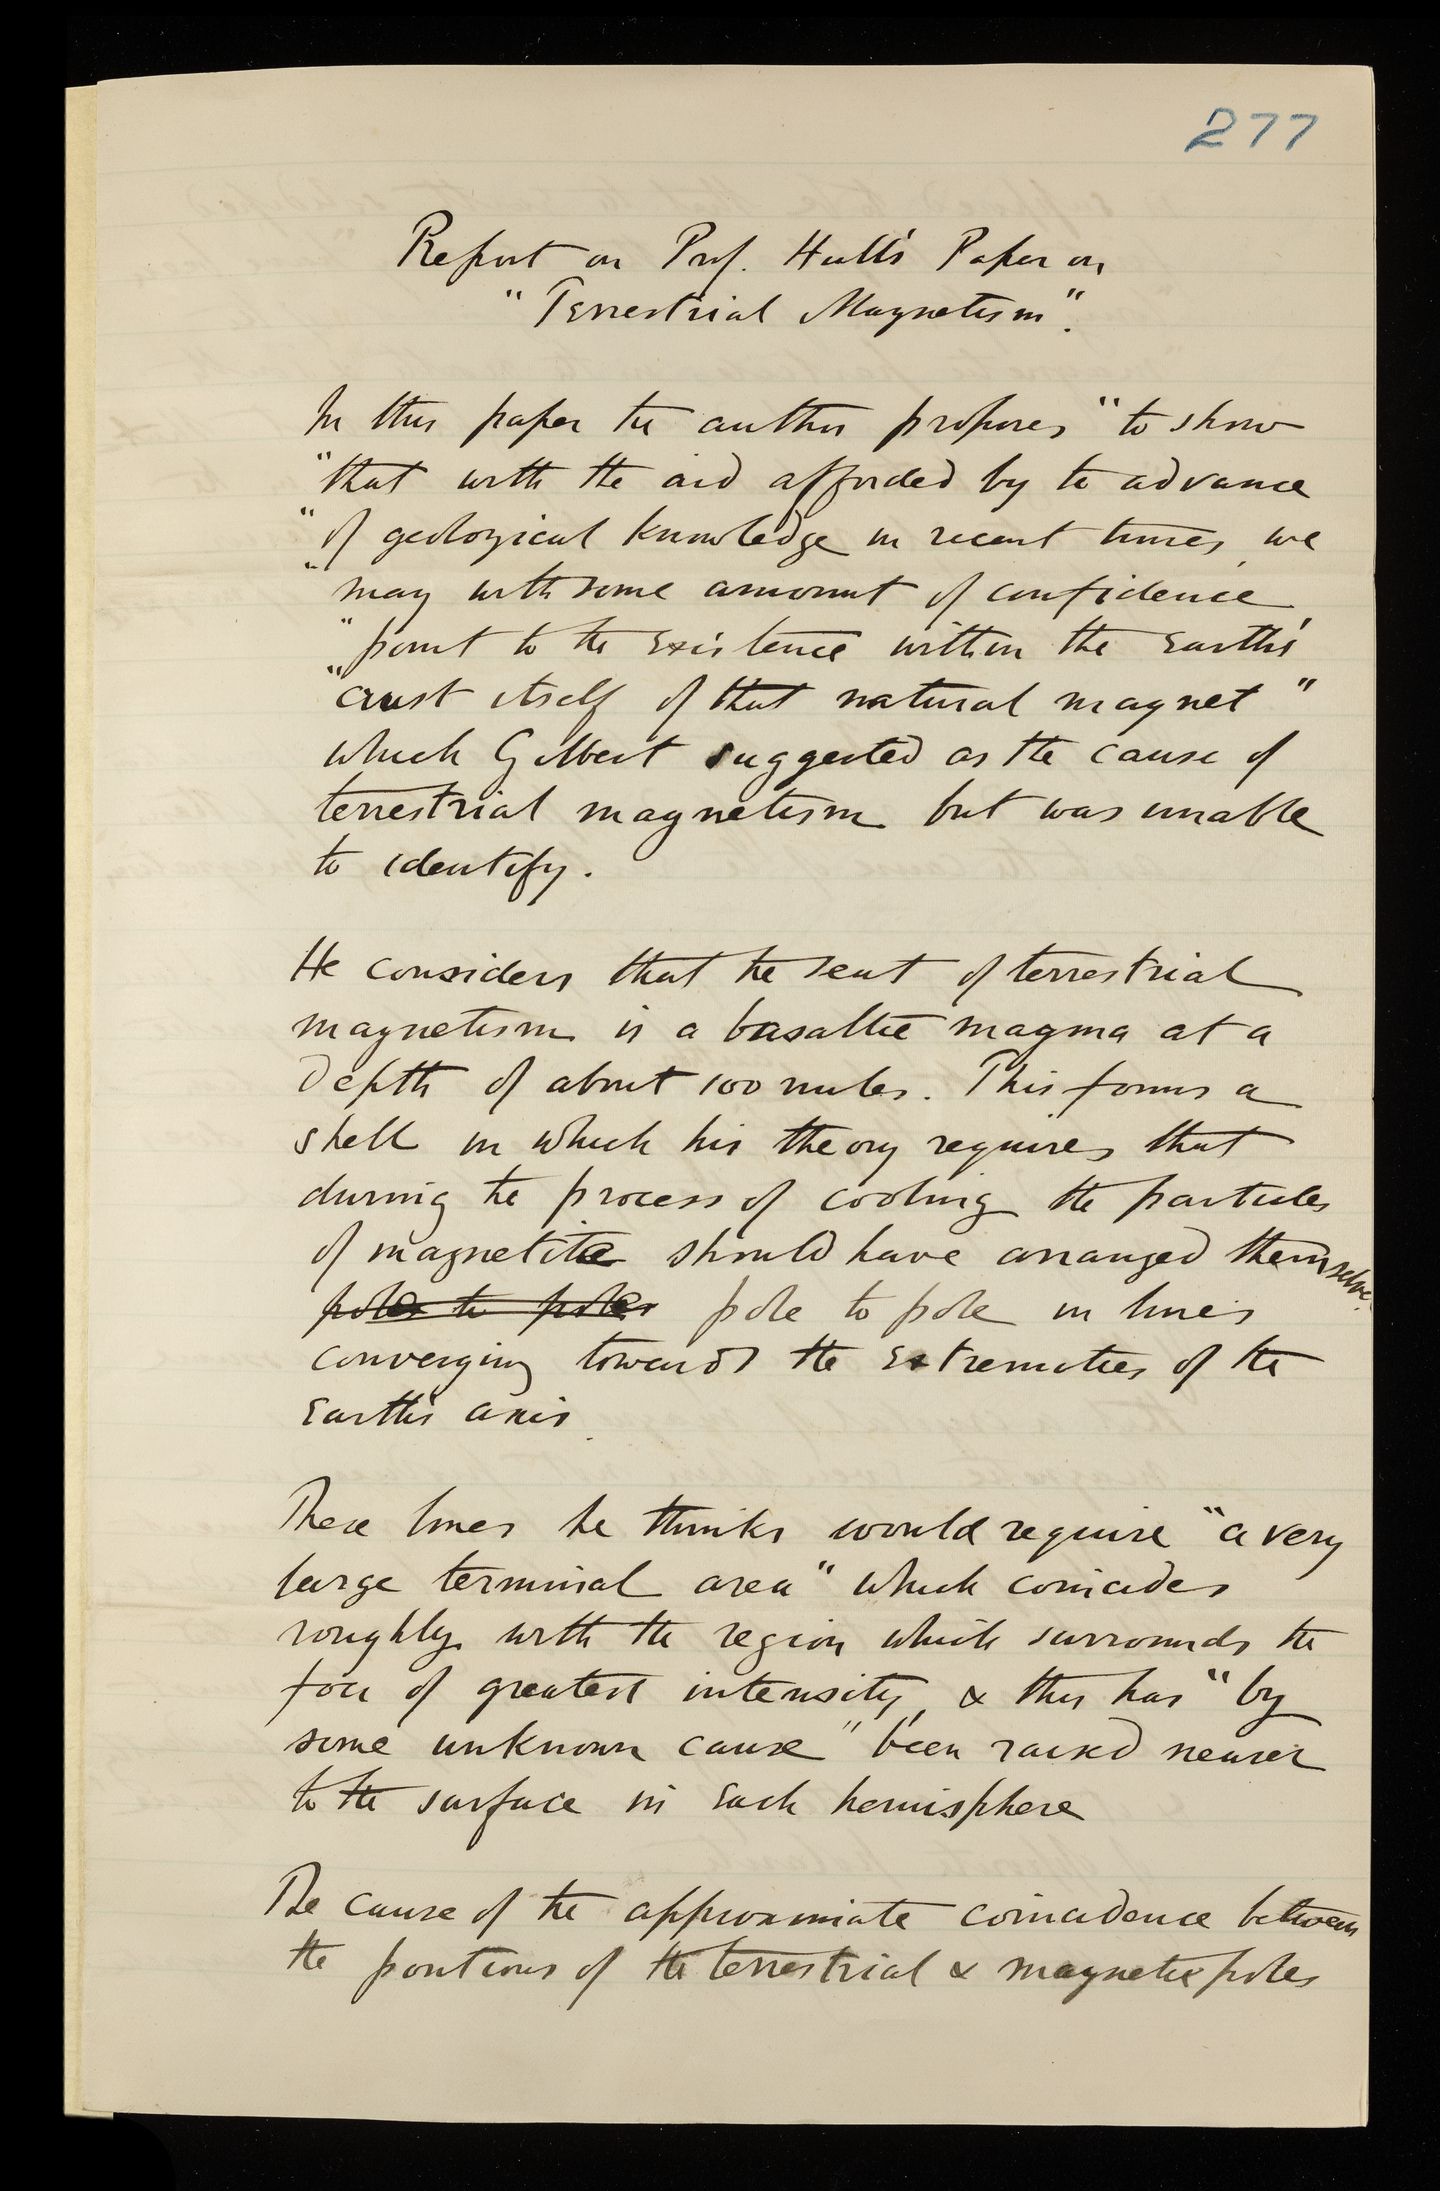 277
Report on Prof. Hull's Paper on
"Terrestrial Magnetism".
In this paper the author proposes "to show
"that with the aid afforded by the advance
"of geological knowledge in recent times, we
"may with some amount of confidence
"point to the existence within the Earth's
"crust itself of that natural magnet"
which Gilbert suggested as the cause of
terrestrial magnetism but was unable
to identify.
He considers that the seat of terrestrial
magnetism is a basaltic magma at a
depth of about 100 miles. This forms a
shell in which his theory requires that
during the process of cooling the particles
of magnetite should have arranged themselves
poles to poles pole to pole in lines
converging towards the extremities of the
Earth's axis.
These lines he thinks would require "a very
large terminal area" which coincides
roughly with the region which surrounds the
foci of greatest intensity, & this has "by
some unknown cause" been raised nearer
to the surface in each hemisphere
The cause of the approximate coincidence between
the positions of the terrestrial & magnetic poles